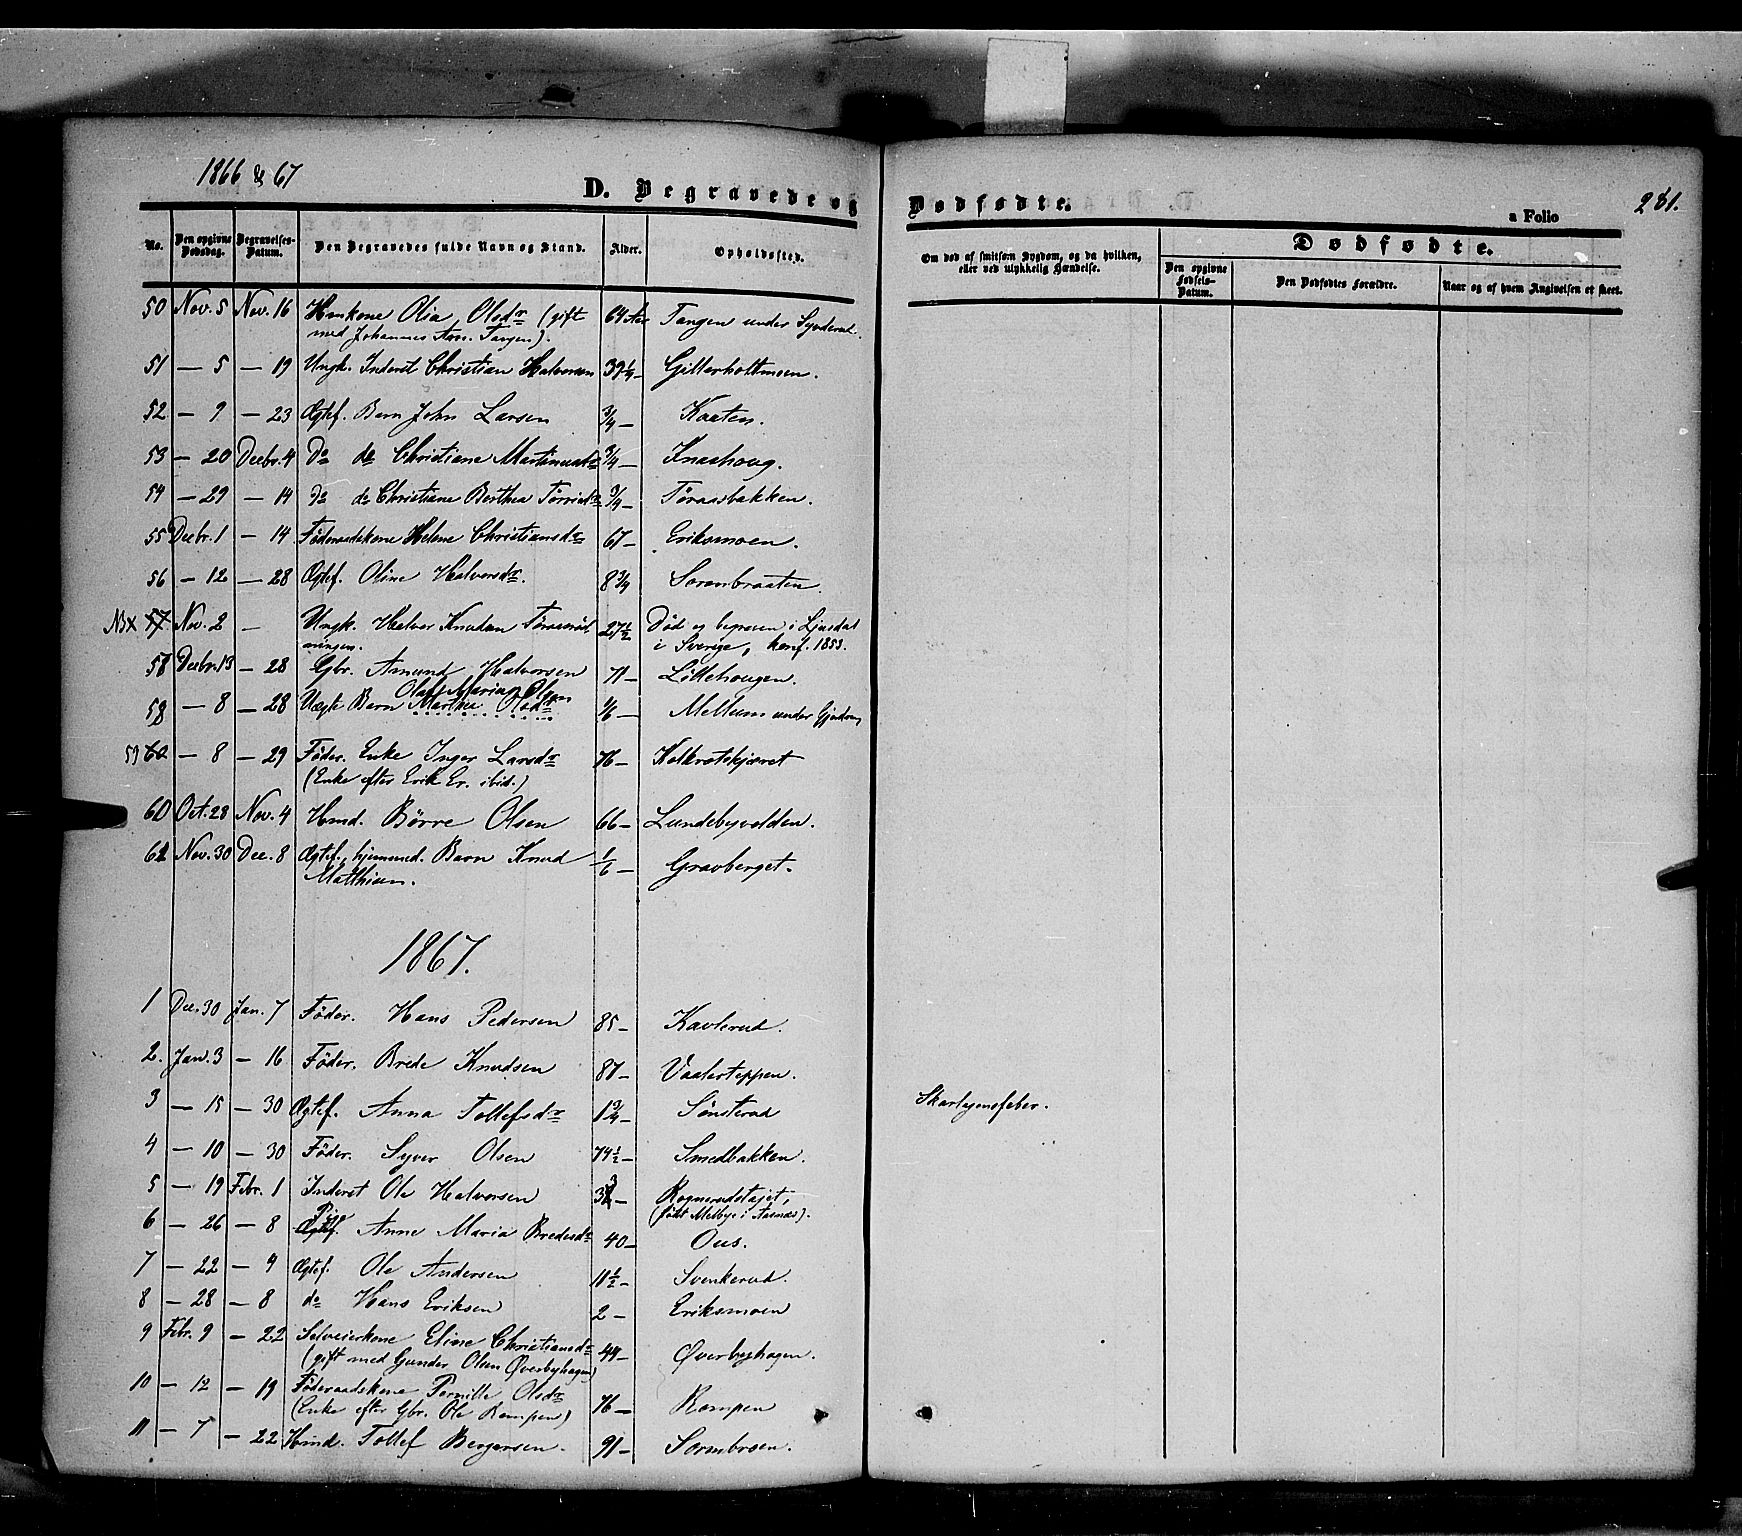 1866 & 67
D. Begravede og Dødfødte.
a Folio 281.
No.
Den opgivne Dødsdag.
Begravelses-Datum.
Den Begravedes fulde Navn og Stand.
Alder.
Opholdssted.
Om død af smitsom Sygdom, og da hvilken, eller ved ulykkelig Hændelse.
Dødfødte.
Den opgivne Fødsels-Datum.
Den Dødfødtes Forældre.
Naar og af hvem Angivelsen er skeet.
50 Nov. 5 Nov. 16 Huskone Olia Olsdr (gift 64 Aar Tangen under
med Johannes Arn. Tangen).
51 — 5 — 19 Ungk. Inderst Christian Halvorsen 39 1/4 — Gitterholtmoen.
52 — 9 — 23 Ægtef. Barn John Larsen 3/4 — Kaaten.
53 — 20 Decbr. 4 Do do Christiane 3/4 — Knashoug.
54 — 29 — 14 do do Christiane Berthea 3/4 — Toraasbakken.
55 Decbr. 1 — 14 Føderaadskone Helene Christiansdr 67 — Eriksmoen.
56 — 12 — 28 Ægtef. Oline Halvorsdr. 8 3/4 Sorenbraaten.
NB X 57 Nov. 2 — Ungk. Halvor Knudsen 27 1/2 Død og begraven i Ljusdal
i Sverige, konf. 1853.
58 Decbr. 13 — 28 Gbr. Amund Halvorsen 71 — Lillehougen.
Olaf Marius Olsen
58 — 8 — 28 Uægte Barn Marthe Olsdr 1/6 — Mellum under
59 60 — 8 — 29 Føder. Enke Inger Larsdr 76 — Kolbrotskjæret
(Enke efter Erik Er. ibid.)
60 Oct. 28 Nov. 4 Hmd. Børre Olsen 66 — Lundebyvolden.
61 Nov. 30 Dec. 8 Ægtef., hjemmed. Barn Knud 1/6 — Gravberget.
Matthisen.
1867.
1 Dec. 30 Jan. 7 Føder. Hans Pedersen 85 — Kavlerud.
2. Jan. 3 — 16 Føder. Brede Knudsen 87 — Vaalerteppen.
3 — 15 — 30 Ægtef. Anna Tollefsdr 1 3/4 — Sønsterud Skarlagensfeber.
4 — 10 — 30 Føder. Syver Olsen 74 1/2 — Smedbakken.
5 — 19 Febr. 1 Inderst Ole Halvorsen — Rognerudstøjet,
(født Melbye i Aasnæs).
Pige
6 — 26 — 8 Ægtef. Anne Maria Bredesdr 40 — Ous.
7 — 22 — 9 Ægtef. Ole Andersen 11 1/2 — Svenkerud.
8 — 28 — 8 do Hans Eriksen 2 — Eriksmoen
9 Febr. 9 — 22 Selveierkone Eline Christiansdr 49 — Øverbyhagen.
(gift med Gunder Olsen Øverbyhagen)
10 — 12 — 19 Føderaadskone Pernille Olsdr 76 — Rampen
(Enke efter Gbr. Ole Rampen)
11 — 7 — 22 Hmd. Tollef Bergersen. 91 — Sormbroen.